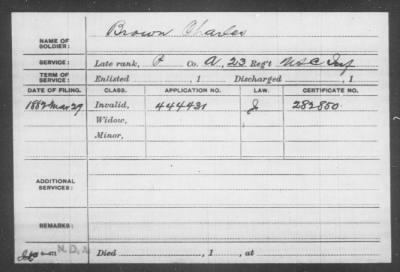 NAME OF SOLDIER: Brown Charles
SERVICE: Late rank, P Co. A, 23 Reg't U S C Inf
TERM OF SERVICE: Enlisted , 1 Discharged , 1
DATE OF FILING. CLASS. APPLICATION NO. LAW. CERTIFICATE NO.
1882 Mar 29 Invalid, 444431 J 282850
Widow,
Minor,
ADDITIONAL SERVICES:
REMARKS:
Died , 1 , at